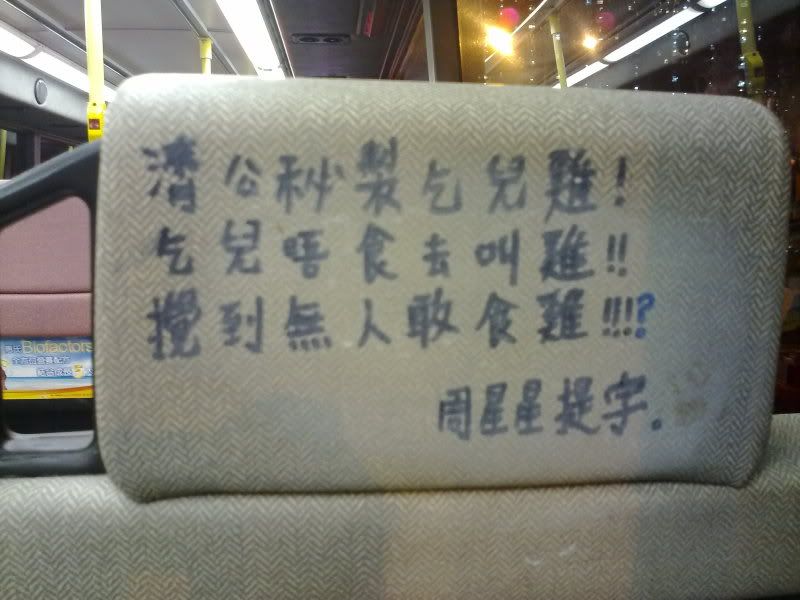 濟公秘製乞兒雞!
乞兒唔食去叫雞!!
攪到無人敢食雞!!!?
周星星提字。
Biofactors